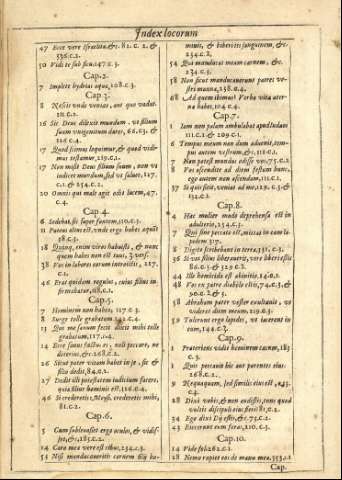 Index locorum
47 Ecce vere Israelita, &c. 82. c. 2. &
536. c. 2.
50 Vidi te sub ficu, 147. c. 3.
Cap. 2.
7 Implete hydrias aqua, 108. c. 3.
Cap. 3.
8 Nescis unde veniat, aut quo vadat.
16 Sic Deus dilexit mundum, ut filium
suum unigenitum daret, 66, 63. &
116. c. 4.
17 Quod scimus loquimur, & quod vidi-
mus testamur, 119. c. 1.
17 Non misit Deus filium suum, non ut
iudicet mundum, sed ut salvet, 127.
c. 1. & 254. c. 2.
20 Omnis qui male agit odit lucem, 47.
c. 4.
Cap. 4.
6 Sedebat, sic super fontem, 110. c. 3.
11 Puteus altus est, unde ergo habes aquã?
58. c. 3.
18 Quinq, enim viros habuisti, & nunc
quem habes non est tuus, 3.
38 Vos in labores eorum introistis, 217.
c. 1.
46 Erat quidam regulus, cuius filius in-
firmabatur, 68. c. 1.
Cap. 5.
7 Hominem non habeo, 117. c. 3.
8 Surge tolle grabatum, c. 4.
11 Qui me sanum fecit dixit mihi tolle
grabatum, 117. c. 4.
14 Ecce sanus factus es, noli peccare, ne
deterius, &c. 268. c. 2.
26 Sicut pater vitam habet in se, sic &
filio dedit, 84. c. 2.
27 Dedit illi potestatem iudicium facere,
quia filius hominis est, 116. c. 4.
46 Si crederetis Moysi, crederetis mihi,
81. c. 2.
Cap. 6.
5 Cum sublevasset ergo oculos, & vidis-
set, &c. 185. c. 2.
14 Caro mea vere est cibus, 234. c. 3.
54 Nisi manducaveritis carnem filij ho-
minis, & biberitis sanguinem, &c.
254. c. 2.
54 Qui manducat meam carnem, &c.
234. c. 3.
58 Non sicut manducaverunt patres ve-
stri manna, 258. c. 4.
68 Ad quem ibimus? Verba vitæ æter-
næ habes, 104. c. 4.
Cap. 7.
1 Iam non palam ambulabat apud Iudæos
111. c. 1. & 209. c. 1.
6 Tempus meum non dum advenit, tem-
pus autem vestrum, &c. 111. c. 1.
7 Non potest mundus odisse vos, 75. c. 2.
8 Vos ascendite ad diem festum hunc,
ego autem non ascendam, 111. c. 1.
37 Si quis sitit, veniat ad me, 129. c. 3. &
134. c. 2.
Cap. 8.
4 Hæc mulier modo deprehensa est in
adulterio, 254. c. 1.
7 Qui sine peccato est, mittat in eam la-
pidem 317.
8 Digito scribebant in terra, 351. c. 3.
36 Si vos filius liberaverit, vere liberi estis
86. c. 3. & 329. c. 2.
44 Ille homicida est abinitio, 140. c. 1.
48 Vos ex patre diabolo estis, 74. c. 3. &
90. c. 2. & 3.
58 Abraham pater vester exultavit, ut
videret diem meum, 219. c. 3.
59 Tulerunt ergo lapides, ut iacerent in
eum, 144. c. 3.
Cap. 9.
1 Præteriens vidit hominem cæcum, 183
c. 3.
2 Quis peccavit hic aut parentes eius,
268. c. 2.
9 Nequaquam, sed similis eius est, 243.
c. 4.
28 Dixi vobis, & non audistis, nunquid
vultis discipuli eius fieri 81. c. 2.
34 Ego dixi Dij estis, &c. 73. c. 2.
43 Eiecerunt eum foras, 210. c. 3.
Cap. 10.
14 Vide fol. 262. c. 1.
28 Nemo rapiet eas de manu mea, 353. c. 1
Cap.